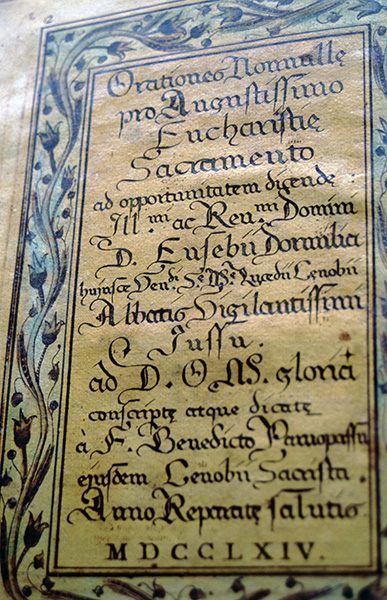 Orationes Nonnullę
pro Augustissimo
Eucharistię
Sacramento
ad opportunitatem dicendę
Ill.mi ac Reu.mi Domini
D. Eusebii
hujusce Ven. Cenobii
Abbatis Vigilantissimi
Jussu.
ad D. O. M. gloriã
conscriptę atque dicatę
à F. Benedicto
ejusdem Cenobii Sacrista.
Anno Reparatę salutis
MDCCLXIV.